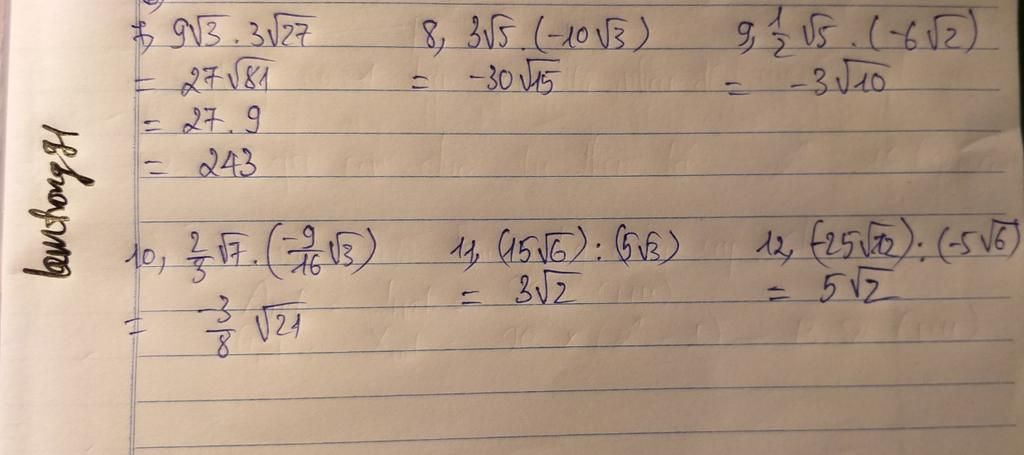 7, 9√3 . 3√27
= 27√81
= 27 . 9
= 243
8, 3√5 . (-10√3)
= -30√15
9, 1/2 √5 . (-6√2)
= -3√10
10, 2/3 √7 . (-9/16 √3)
= -3/8 √21
11, (15√6) : (5√3)
= 3√2
12, (-25√12) : (-5√6)
= 5√2